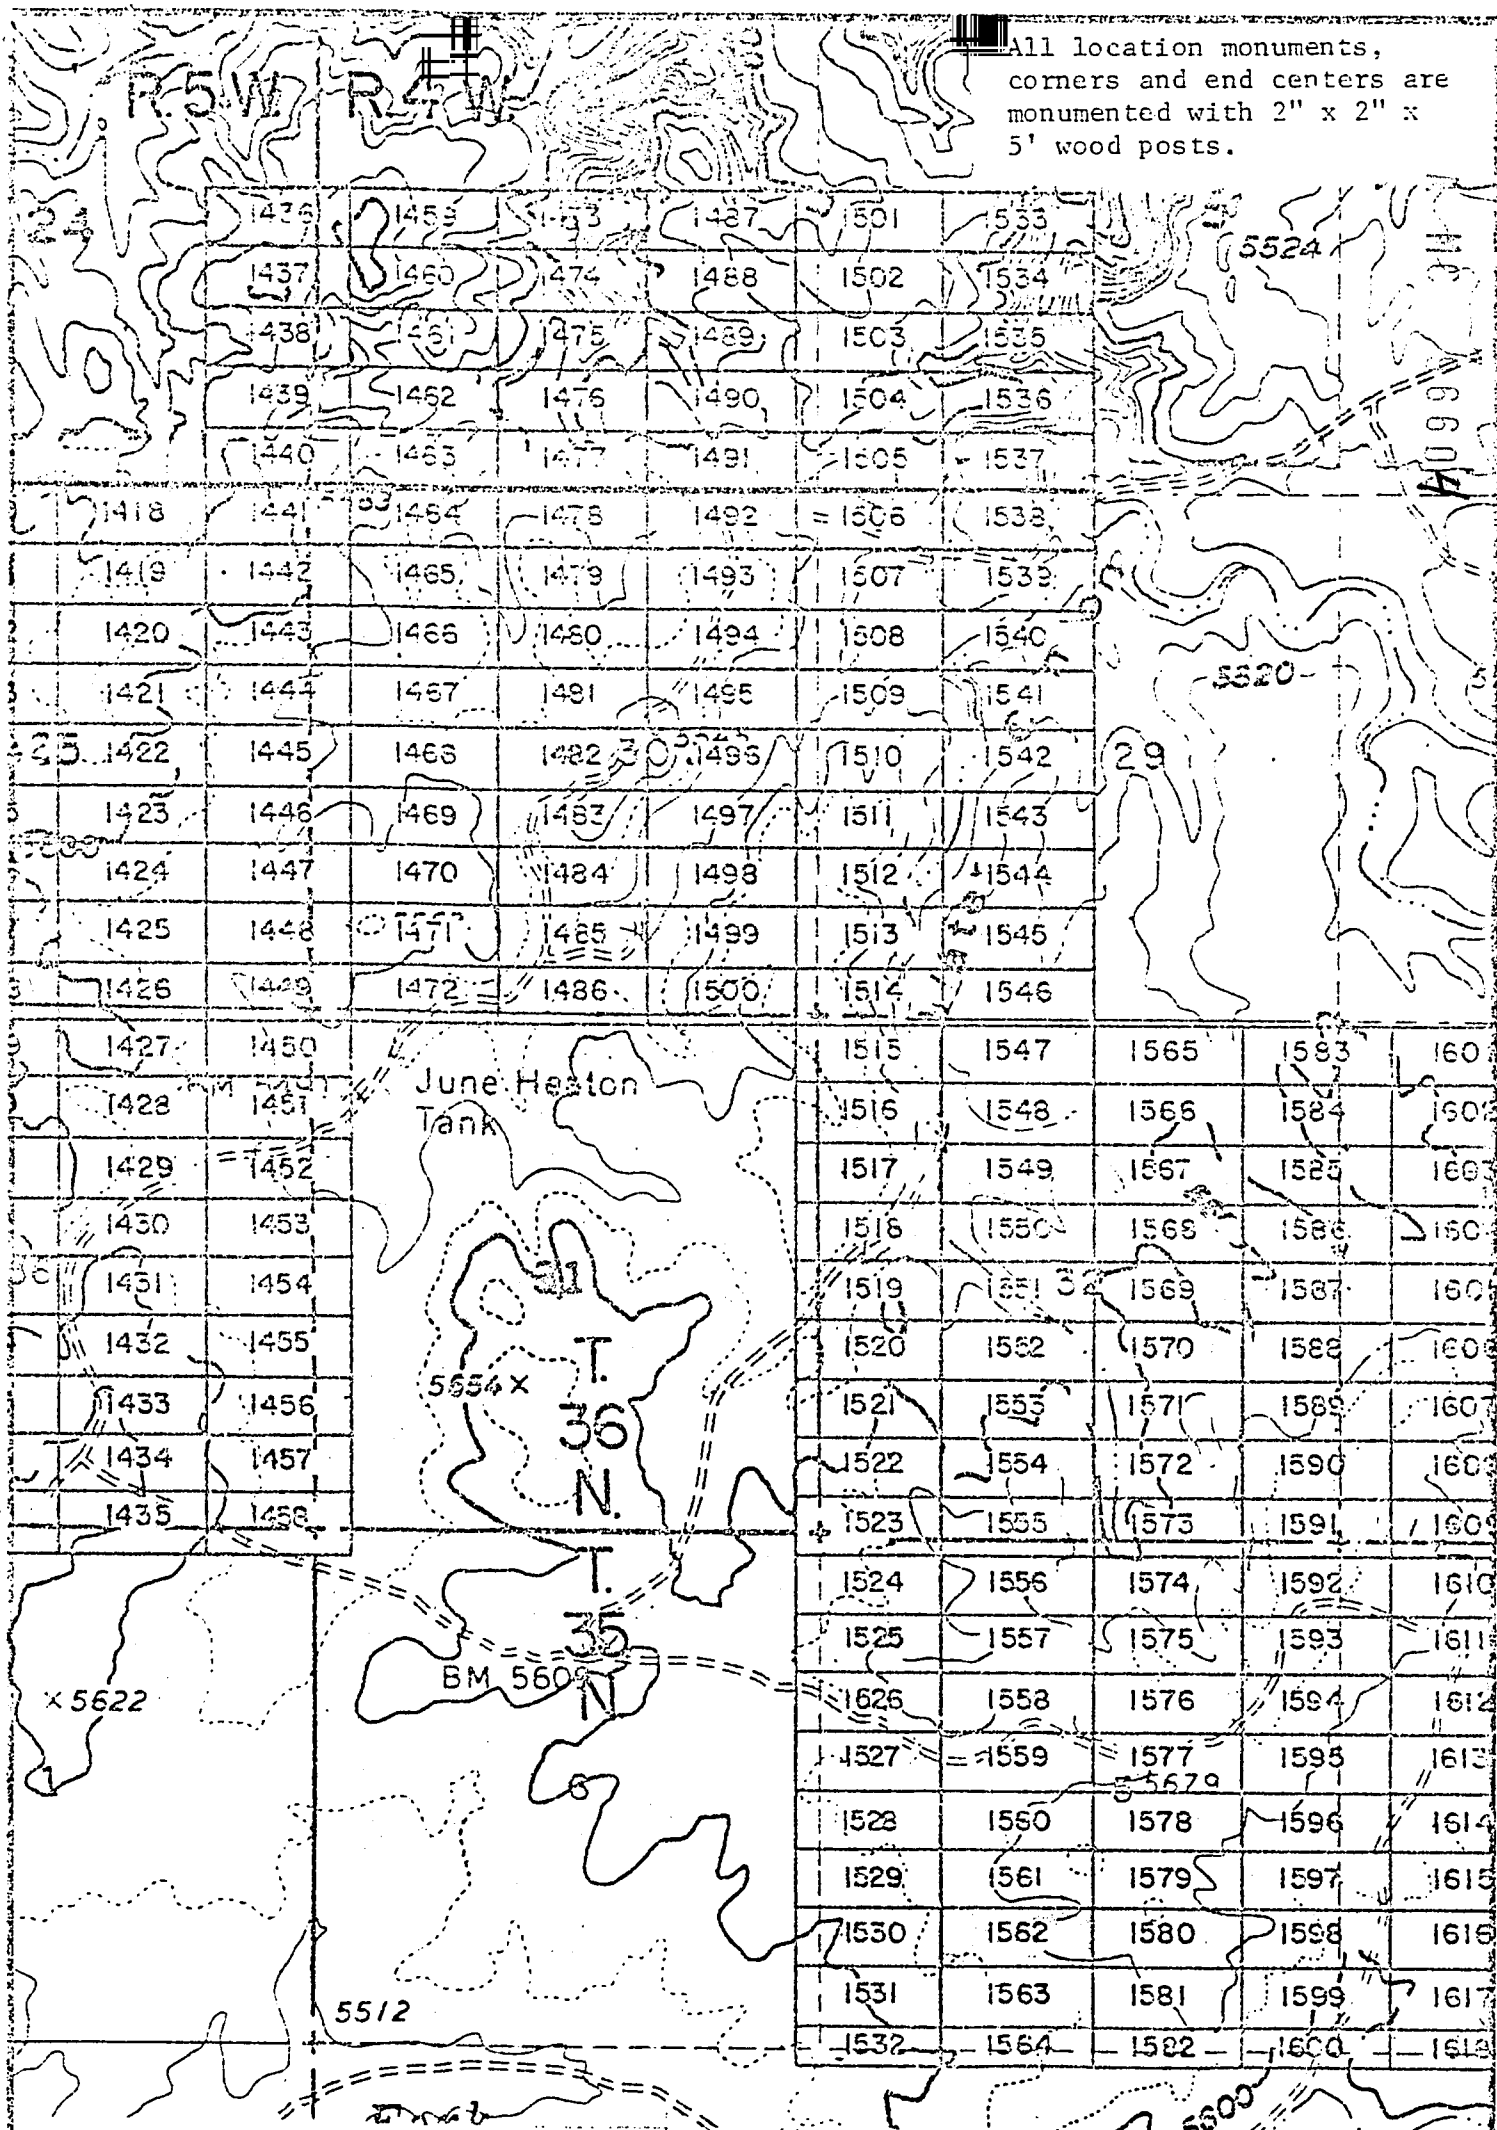 All location monuments,
corners and end centers are
monumented with 2" x 2" x
5' wood posts.
R.5W. R.4W.
24 1436 1459 1487 1501 1533
5524
1437 1460 1474 1488 1502 1534
1438 1461 1475 1489 1503 1535
1439 1462 1476 1490 1504 1536
1440 1463 1477 1491 1505 1537
1418 1441 1464 1478 1492 1506 1538
1419 1442 1465 1479 1493 1507 1539
1420 1443 1466 1480 1494 1508 1540
5520
1421 1444 1467 1481 1495 1509 1541
1422 1445 1468 1482 30 1496 1510 1542 29
1423 1446 1469 1483 1497 1511 1543
1424 1447 1470 1484 1498 1512 1544
1425 1448 1471 1485 1499 1513 1545
1426 1449 1472 1486 1500 1514 1546
1427 1450 1515 1547 1565 1583 160
June Heaton
Tank
1428 1451 1516 1548 1566 1584 1602
1429 1452 1517 1549 1567 1585 1603
1430 1453 1518 1550 1568 1586 160
36 1431 1454 31 1519 1551 32 1569 1587 160
1432 1455 T. 1520 1552 1570 1588 1606
5654 X
1433 1456 36 1521 1553 1571 1589 1607
1434 1457 1522 1554 1572 1590 1608
N.
1435 1458 1523 1555 1573 1591 1609
T. 1524 1556 1574 1592 1610
35 1525 1557 1575 1593 1611
BM 5609
N
X 5622 1626 1558 1576 1594 1612
1527 1559 1577 1595 1613
6 5 5679
1528 1560 1578 1596 1614
1529 1561 1579 1597 1615
1530 1562 1580 1598 1616
1531 1563 1581 1599 1617
5512
1532 1564 1582 1600 1618
5600